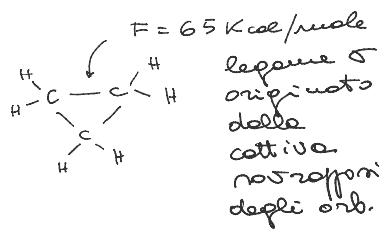 F = 65 Kcal/mole
legame σ
originato
dalla
cattiva
sovrapposi
degli orb.
H
H
C — C
H
H
C
H
H